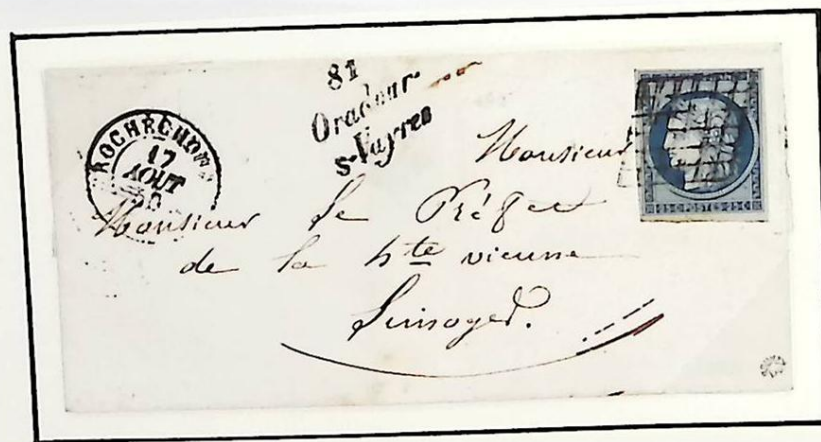 81
Oradour-
s-Vayres
ROCHECHOU
17
AOUT
Monsieur
Monsieur le Préfet
de la hte vienne
Limoges.
25·C·POSTES·25·C